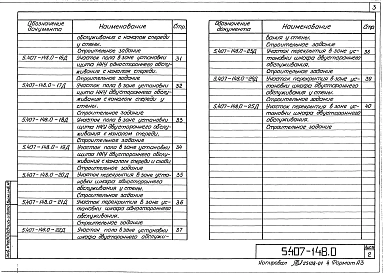 3
Обозначение документа
Наименование
Стр.
обслуживания с каналом спереди
у стены.
Строительное задание
5.407-148.0-16Д Участок пола в зоне установки 31
щита НКУ одностороннего обслу-
живания с каналом спереди.
Строительное задание
5.407-148.0-17Д Участок пола в зоне установки 32
щита НКУ двустороннего обслу-
живания с каналом спереди у
стены.
Строительное задание
5.407-148.0-18Д Участок пола в зоне установки 33
щита НКУ двустороннего обслу-
живания с каналом спереди.
Строительное задание
5.407-148.0-19Д Участок пола в зоне установки 34
щита НКУ двустороннего обслу-
живания с каналом спереди и сзади
Строительное задание
5.407-148.0-20Д Участок перекрытия в зоне уста- 35
новки шкафа одностороннего
обслуживания у стены
Строительное задание
5.407-148.0-21Д Участок перекрытия в зоне ус- 36
тановки шкафа одностороннего
обслуживания.
Строительное задание
5.407-148.0-22Д Участок перекрытия в зоне установки 37
шкафа двустороннего обслужи-
Обозначение документа
Наименование
Стр.
вания у стены.
Строительное задание
5.407-148.0-23Д Участок перекрытия в зоне ус- 38
тановки шкафа двустороннего
обслуживания.
Строительное задание
5.407-148.0-24Д Участок перекрытия в зоне ус- 39
тановки шкафа двустороннего
обслуживания у стены
Строительное задание
5.407-148.0-25Д Участок перекрытия в зоне ус- 40
тановки шкафа двустороннего
обслуживания
Строительное задание
5.407-148.0
Лист
2
Копировал
25108-01 4 Формат А3